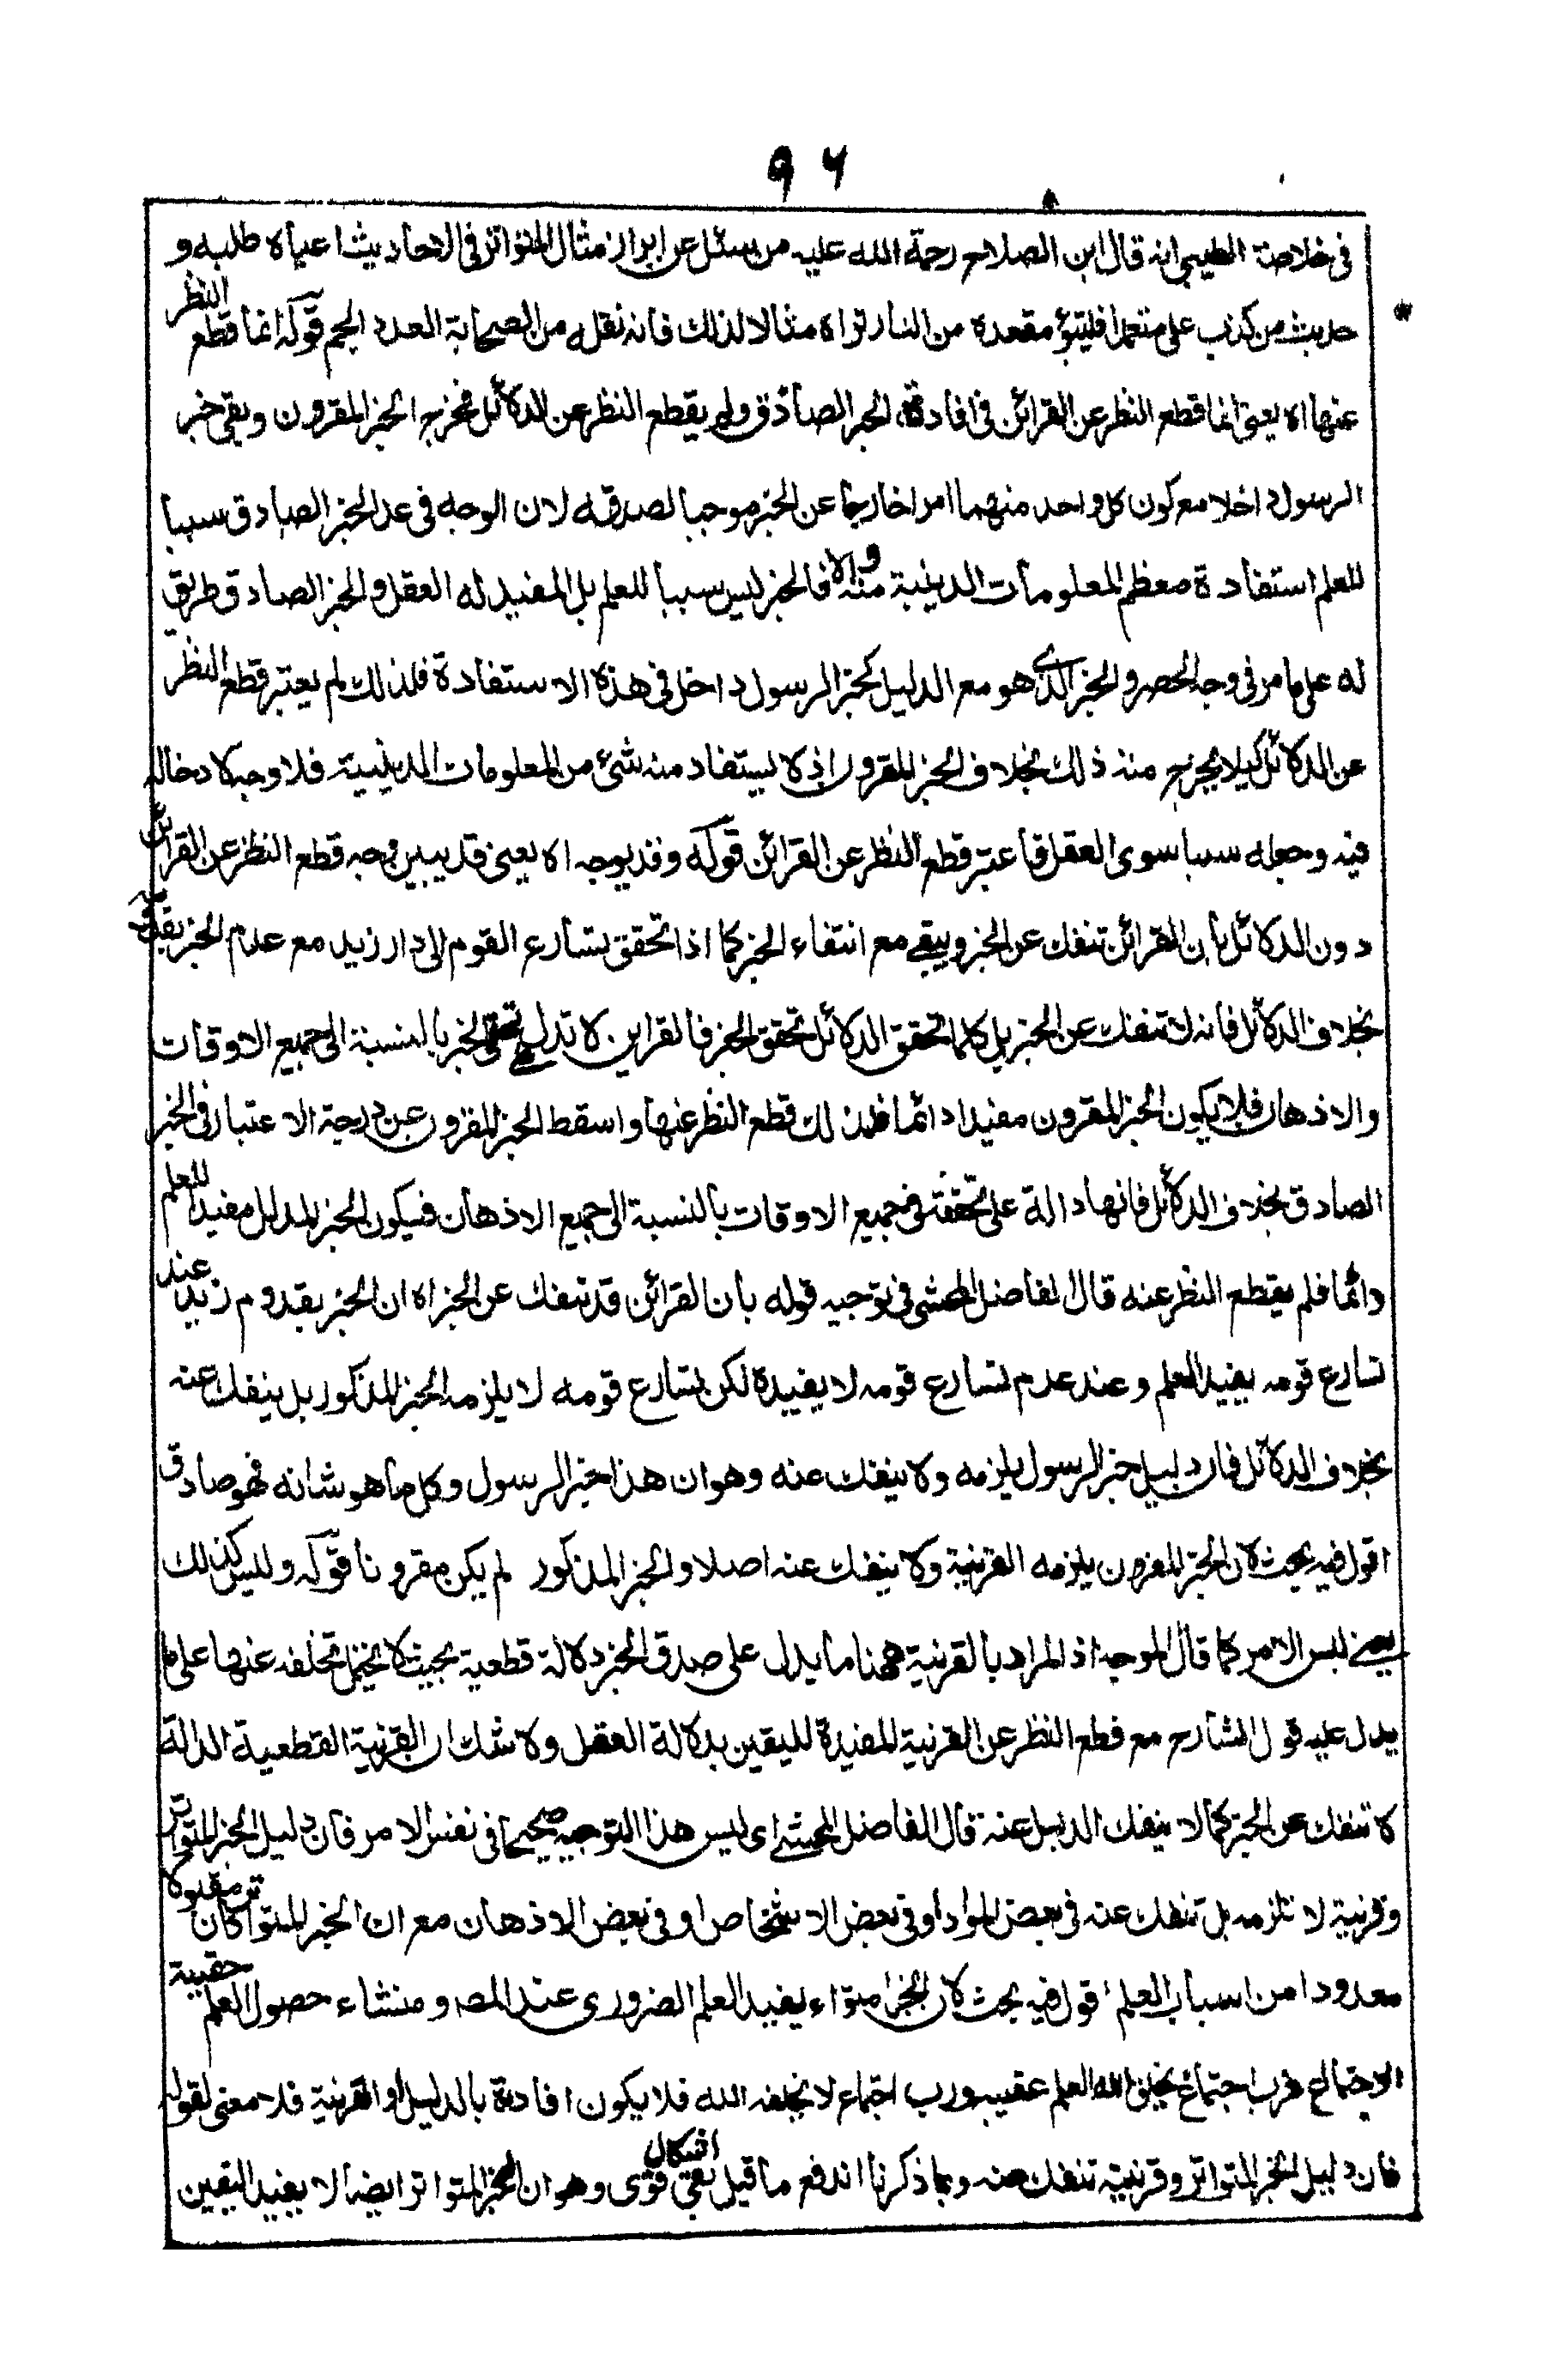 ٩٦
في خلاصة الطيبي انه قال ابن الصلاح رحمة الله عليه من سئل عن ابراز مثال المتواتر في الاحاديث اعياه طلبه و
حديث من كذب علي متعمدا فليتبؤ مقعده من النار نراه مثالا لذلك فانه نقله من الصحابة العدد الجم قوله انما قطع النظر
عنها اه يعني انما قطع النظر عن القرائن في افادة الخبر الصادق ولم يقطع النظر عن الدلائل فخرج الخبر المقرون وبقي خبر
الرسول داخلا مع كون كل واحد منهما امرا خارجيا عن الخبر موجبا لصدقه لان الوجه في عد الخبر الصادق سببا
للعلم استفادة معظم المعلومات الدينية منه والا فالخبر ليس سببا للعلم بل المفيد له العقل والخبر الصادق طريق
له على ما مر في وجه الحصر والخبر الذي هو مع الدليل كخبر الرسول داخل في هذه الاستفادة فلذلك لم يعتبر قطع النظر
عن الدلائل كيلا يخرج منه ذلك بخلاف الخبر المقرون اذ لا يستفاد منه شئ من المعلومات الدينية فلا وجه لادخاله
فيه وجعله سببا سوى العقل فاعتبر قطع النظر عن القرائن قوله وقد يوجه اه يعني قد يبين وجه قطع النظر عن القرائن
دون الدلائل بان القرائن تنفك عن الخبر ويبقى مع انتفاء الخبر كما اذا تحقق تسارع القوم الى دار زيد مع عدم الخبر بقدومه
بخلاف الدلائل فانه لا تنفك عن الخبر بل كلما تحقق الدلائل تحقق الخبر فالقراين لا تدل على تحقق الخبر بالنسبة الى جميع الاوقات
والاذهان فلا يكون الخبر المقرون مفيدا دائما فلذلك قطع النظر عنها واسقط الخبر المقرون عن درجة الاعتبار في الخبر
الصادق بخلاف الدلائل فانها دالة على تحققه في جميع الاوقات بالنسبة الى جميع الاذهان فيكون الخبر المدلل مفيدا للعلم
دائما فلم يقطع النظر عنه قال الفاضل المحشي في توجيه قوله بان القرائن قد تنفك عن الخبر اه ان الخبر بقدوم زيد عند
تسارع قومه يفيد العلم وعند عدم تسارع قومه لا يفيده لكن تسارع قومه لا يلزمه الخبر المذكور بل ينفك عنه
بخلاف الدلائل فان دليل خبر الرسول يلزمه ولا ينفك عنه وهو ان هذا خبر الرسول وكل ما هو شانه فهو صادق
اقول فيه بحث لان الخبر المقرون يلزمه القرينة ولا ينفك عنه اصلا والخبر المذكور لم يكن مقرونا قوله وليس كذلك
يعني ليس الامر كما قال الموجه اذ المراد بالقرينة ههنا ما يدل على صدق الخبر دلالة قطعية بحيث لا يحتمل تخلفه عنها على ما
يدل عليه قول الشارح مع قطع النظر عن القرينة المفيدة لليقين بدلالة العقل ولا شك ان القرينة القطعية الدالة
لا تنفك عن الخبر كما لا ينفك الدليل عنه قال الفاضل المحشي اي ليس هذا التوجيه صحيحا في نفس الامر فان دليل الخبر المتواتر
وقرينة لا تلزمه بل تنفك عنه في بعض المواد او في بعض الاشخاص او في بعض الاذهان مع ان الخبر المتواتر كان مقبولا
معدودا من اسباب العلم اقول فيه بحث لان الخبر متواء يفيد العلم الضروري عند المص ومنشاء حصول العلم حقيبة
الاجتماع فرب اجتماع يخلق الله العلم عقيبه ورب اجتماع لا يخلقه الله فلا يكون افادة بالدليل او القرينة فلا معنى لقوله
فان دليل الخبر المتواتر وقرينية تنفك عنه وبما ذكرنا اندفع ما قيل بقي اشكال قوى وهو ان الخبر المتواتر ايضا لا يفيد اليقين